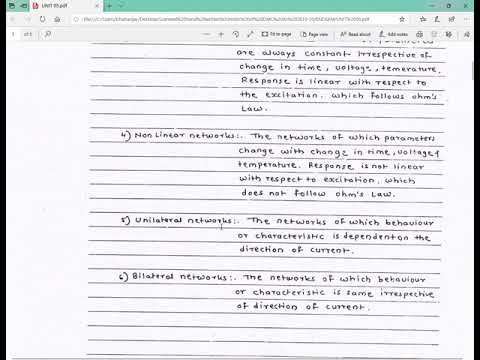 UNIT 05.pdf
of 5
are always constant irrespective of
change in time, voltage, temerature.
Response is linear with respect to
the excitation. which follows ohm's
Law.
4) Non Linear networks:. The networks of which parameters
change with change in time, voltage &
temperature. Response is not linear
with respect to excitation, which
does not follow ohm's Law.
5) Unilateral networks:. The networks of which behaviour
or characteristic is dependent on the
direction of current.
6) Bilateral networks:. The networks of which behaviour
or characteristic is same irrespective
of direction of current.